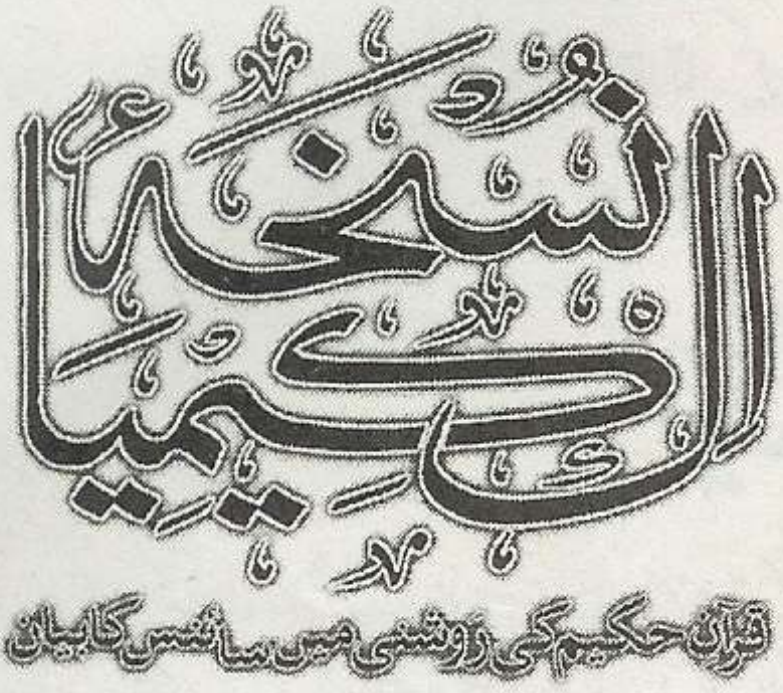 اک نسخۂ کیمیا
قرآن حکیم کی روشنی میں سائنس کا بیان